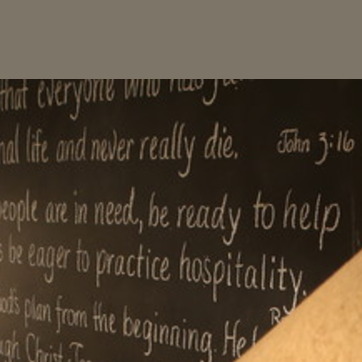 that everyone who has
nal life and never really die. John 3:16
people are in need, be ready to help
s be eager to practice hospitality.
od's plan from the beginning. He
ugh Christ